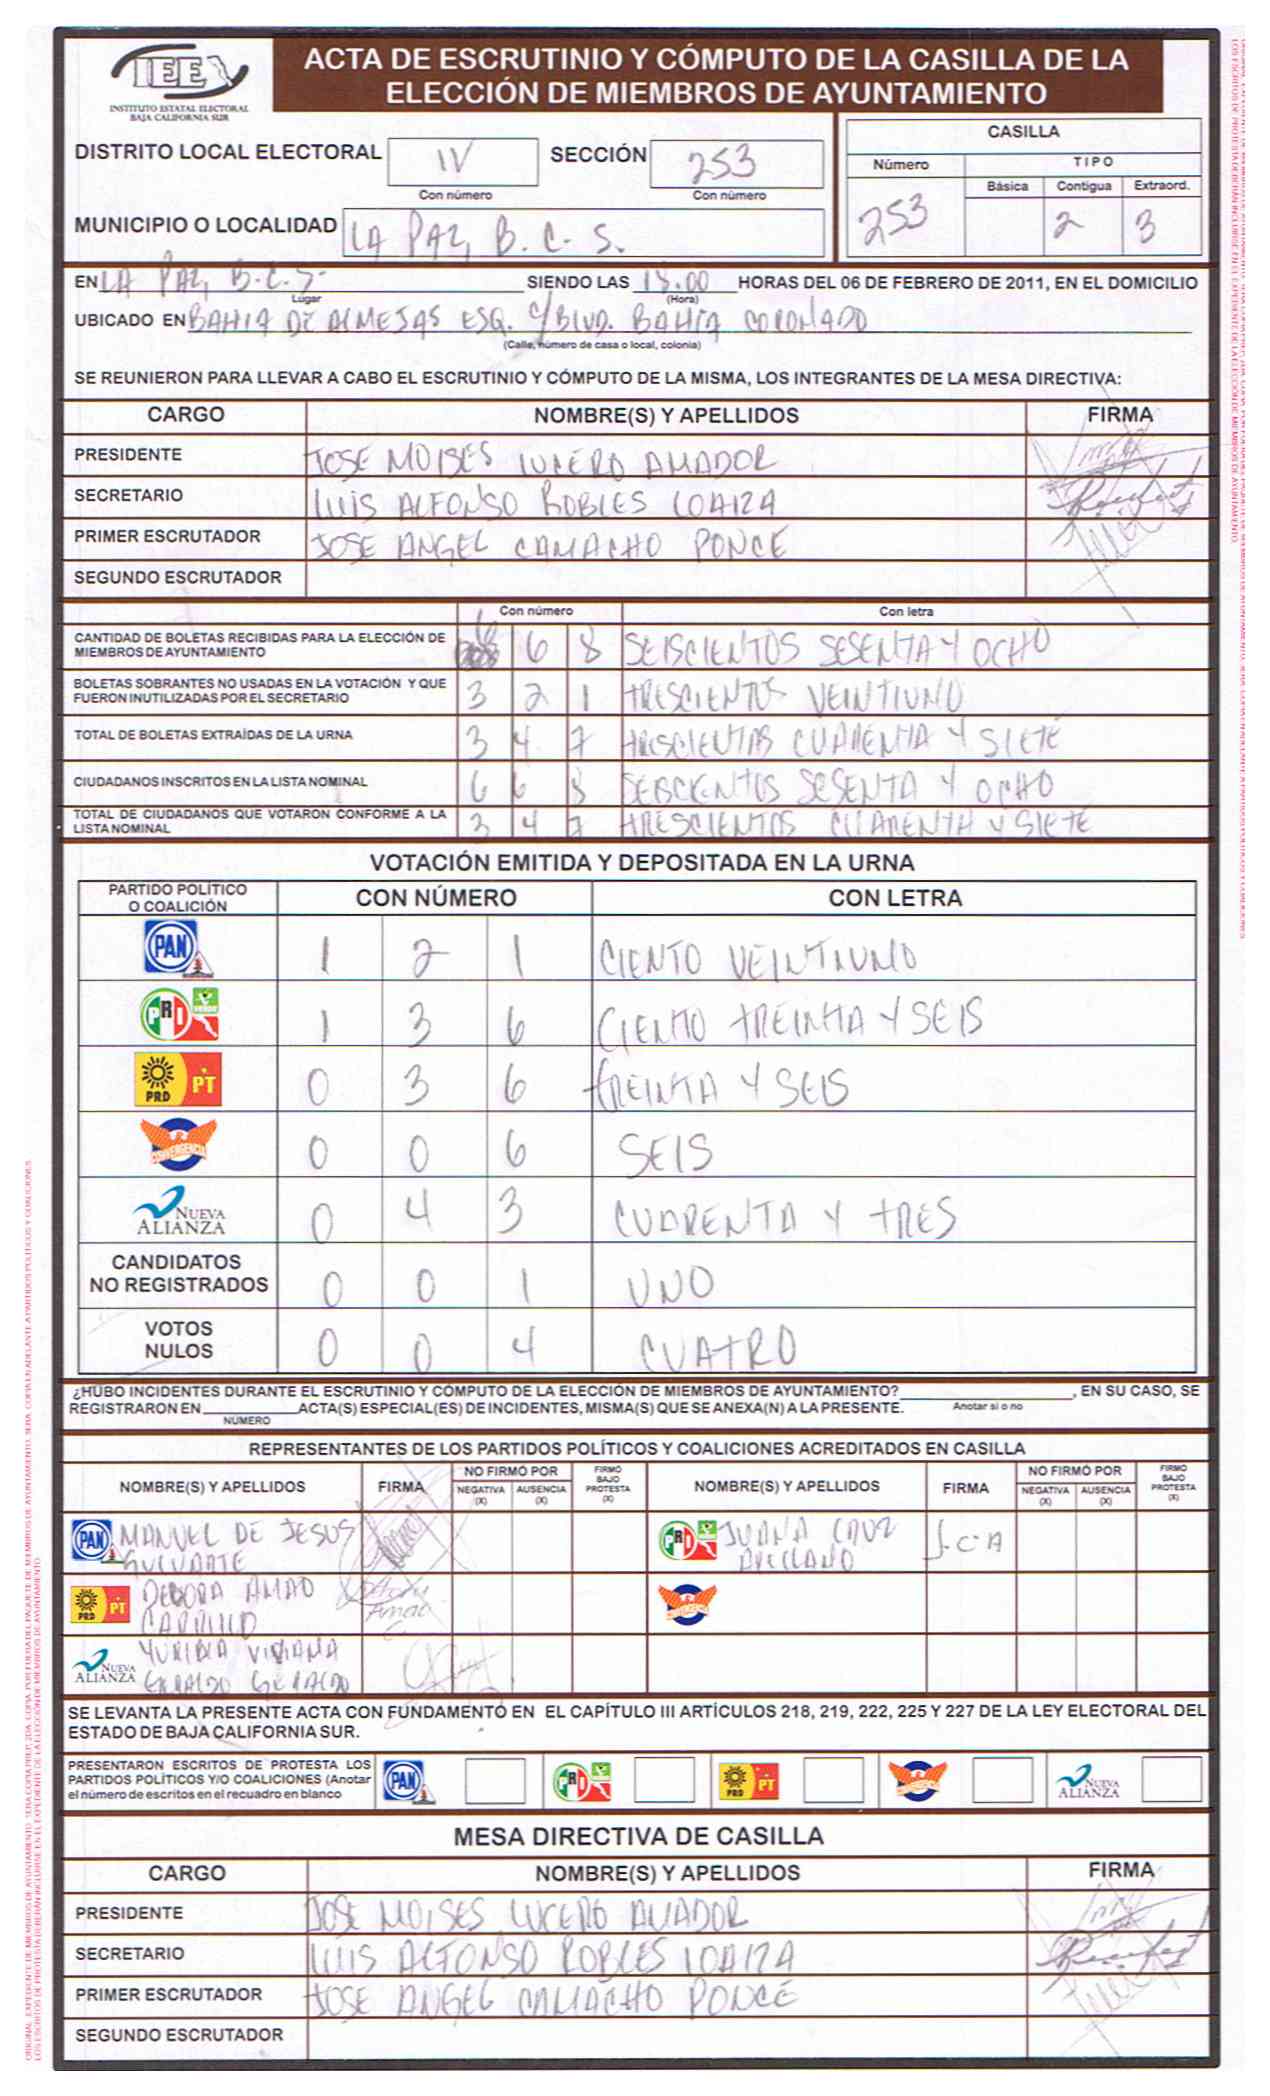 IEE
INSTITUTO ESTATAL ELECTORAL
BAJA CALIFORNIA SUR
ACTA DE ESCRUTINIO Y CÓMPUTO DE LA CASILLA DE LA
ELECCIÓN DE MIEMBROS DE AYUNTAMIENTO
DISTRITO LOCAL ELECTORAL IV SECCIÓN 253
Con número Con número
MUNICIPIO O LOCALIDAD LA PAZ, B. C. S.
CASILLA
Número TIPO
Básica Contigua Extraord.
253 2 3
EN LA PAZ, B.C.S. SIENDO LAS 18:00 HORAS DEL 06 DE FEBRERO DE 2011, EN EL DOMICILIO
Lugar (Hora)
UBICADO EN BAHIA DE ALMEJAS ESQ. C/BLVD. BAHÍA CORONADO
(Calle, número de casa o local, colonia)
SE REUNIERON PARA LLEVAR A CABO EL ESCRUTINIO Y CÓMPUTO DE LA MISMA, LOS INTEGRANTES DE LA MESA DIRECTIVA:
CARGO NOMBRE(S) Y APELLIDOS FIRMA
PRESIDENTE JOSE MOISES LUCERO AMADOR
SECRETARIO LUIS ALFONSO ROBLES LOAIZA
PRIMER ESCRUTADOR JOSE ANGEL CAMACHO PONCE
SEGUNDO ESCRUTADOR
Con número Con letra
CANTIDAD DE BOLETAS RECIBIDAS PARA LA ELECCIÓN DE
MIEMBROS DE AYUNTAMIENTO 6 6 8 SEISCIENTOS SESENTA Y OCHO
BOLETAS SOBRANTES NO USADAS EN LA VOTACIÓN Y QUE
FUERON INUTILIZADAS POR EL SECRETARIO 3 2 1 TRESCIENTOS VEINTIUNO
TOTAL DE BOLETAS EXTRAÍDAS DE LA URNA 3 4 7 TRESCIENTOS CUARENTA Y SIETE
CIUDADANOS INSCRITOS EN LA LISTA NOMINAL 6 6 8 SEISCIENTOS SESENTA Y OCHO
TOTAL DE CIUDADANOS QUE VOTARON CONFORME A LA
LISTA NOMINAL 3 4 7 TRESCIENTOS CUARENTA Y SIETE
VOTACIÓN EMITIDA Y DEPOSITADA EN LA URNA
PARTIDO POLÍTICO
O COALICIÓN CON NÚMERO CON LETRA
PAN 1 2 1 CIENTO VEINTIUNO
PRI VERDE 1 3 6 CIENTO TREINTA Y SEIS
PRD PT 0 3 6 TREINTA Y SEIS
CONVERGENCIA 0 0 6 SEIS
NUEVA ALIANZA 0 4 3 CUARENTA Y TRES
CANDIDATOS
NO REGISTRADOS 0 0 1 UNO
VOTOS
NULOS 0 0 4 CUATRO
¿HUBO INCIDENTES DURANTE EL ESCRUTINIO Y CÓMPUTO DE LA ELECCIÓN DE MIEMBROS DE AYUNTAMIENTO? , EN SU CASO, SE
REGISTRARON EN ACTA(S) ESPECIAL(ES) DE INCIDENTES, MISMA(S) QUE SE ANEXA(N) A LA PRESENTE. Anotar si o no
NÚMERO
REPRESENTANTES DE LOS PARTIDOS POLÍTICOS Y COALICIONES ACREDITADOS EN CASILLA
NOMBRE(S) Y APELLIDOS FIRMA NO FIRMÓ POR NEGATIVA (X) AUSENCIA (X) FIRMÓ BAJO PROTESTA (X) NOMBRE(S) Y APELLIDOS FIRMA NO FIRMÓ POR NEGATIVA (X) AUSENCIA (X) FIRMÓ BAJO PROTESTA (X)
PAN MANUEL DE JESUS PRI JUANA CRUZ J.C.A
ARELLANO
PRD PT DEBORA AMAO CONVERGENCIA
CARRILLO
NUEVA ALIANZA YURIDIA VIVIANA
GERALDO GERALDO
SE LEVANTA LA PRESENTE ACTA CON FUNDAMENTO EN EL CAPÍTULO III ARTÍCULOS 218, 219, 222, 225 Y 227 DE LA LEY ELECTORAL DEL
ESTADO DE BAJA CALIFORNIA SUR.
PRESENTARON ESCRITOS DE PROTESTA LOS
PARTIDOS POLÍTICOS Y/O COALICIONES (Anotar
el número de escritos en el recuadro en blanco
PAN PRI PRD PT CONVERGENCIA NUEVA ALIANZA
MESA DIRECTIVA DE CASILLA
CARGO NOMBRE(S) Y APELLIDOS FIRMA
PRESIDENTE JOSE MOISES LUCERO AMADOR
SECRETARIO LUIS ALFONSO ROBLES LOAIZA
PRIMER ESCRUTADOR JOSE ANGEL CAMACHO PONCE
SEGUNDO ESCRUTADOR